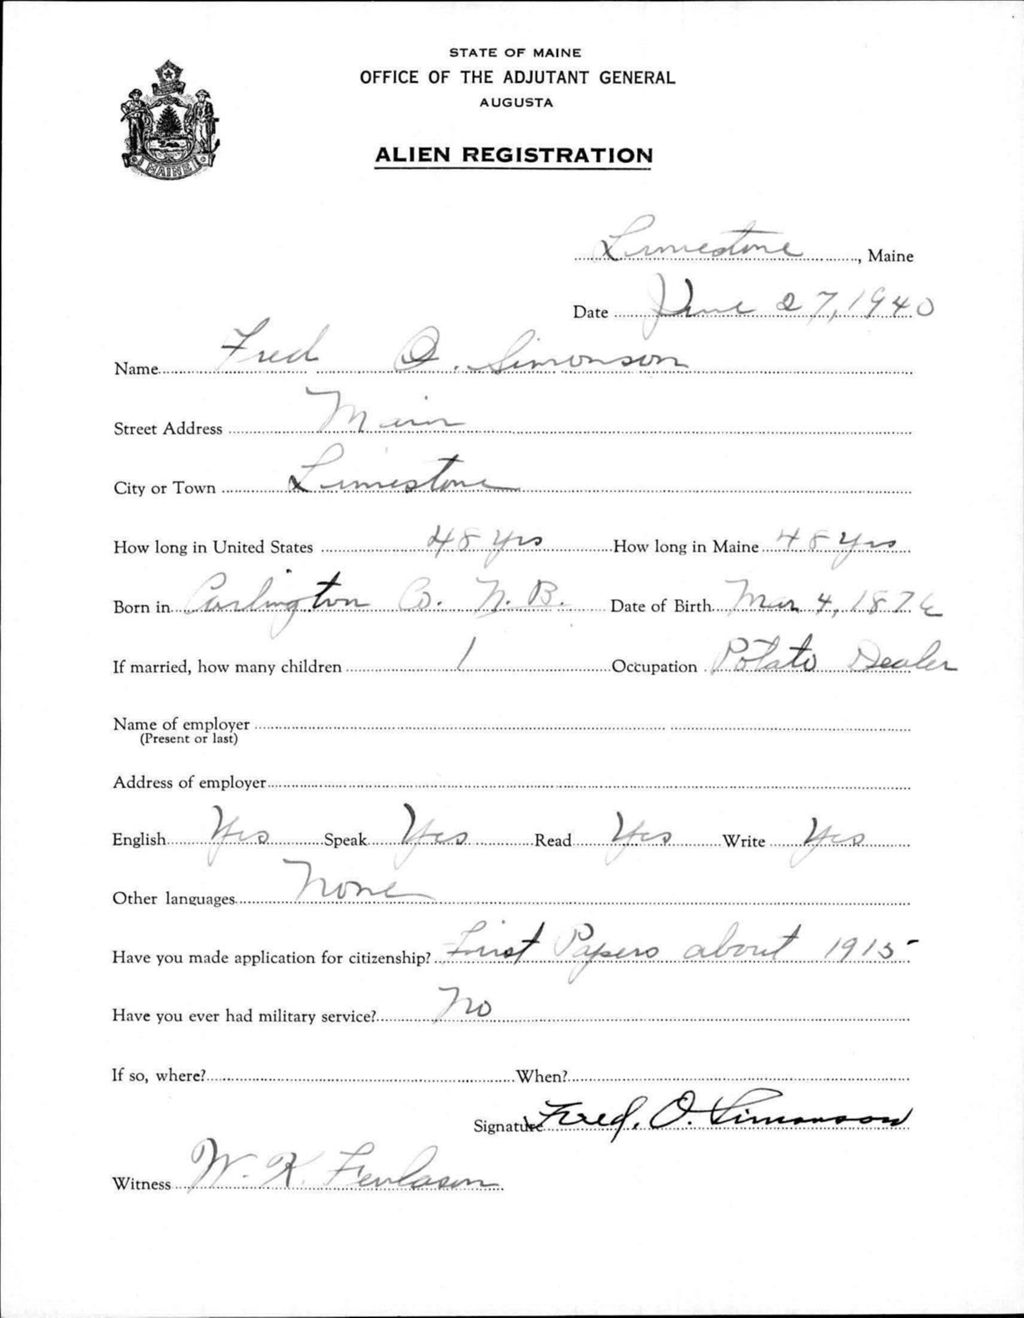 STATE OF MAINE
OFFICE OF THE ADJUTANT GENERAL
AUGUSTA
ALIEN REGISTRATION
MAINE
Limestone, Maine
Date June 27, 1940
Name Fred O. Simonson
Street Address Main
City or Town Limestone
How long in United States 48 yrs How long in Maine 48 yrs
Born in Carlington Co. N. B. Date of Birth Mar 4, 1876
If married, how many children 1 Occupation Potato Dealer
Name of employer
(Present or last)
Address of employer
English Yes Speak Yes Read Yes Write Yes
Other languages None
Have you made application for citizenship? First Papers about 1915
Have you ever had military service? No
If so, where? When?
Signature Fred. O. Simonson
Witness W. K.